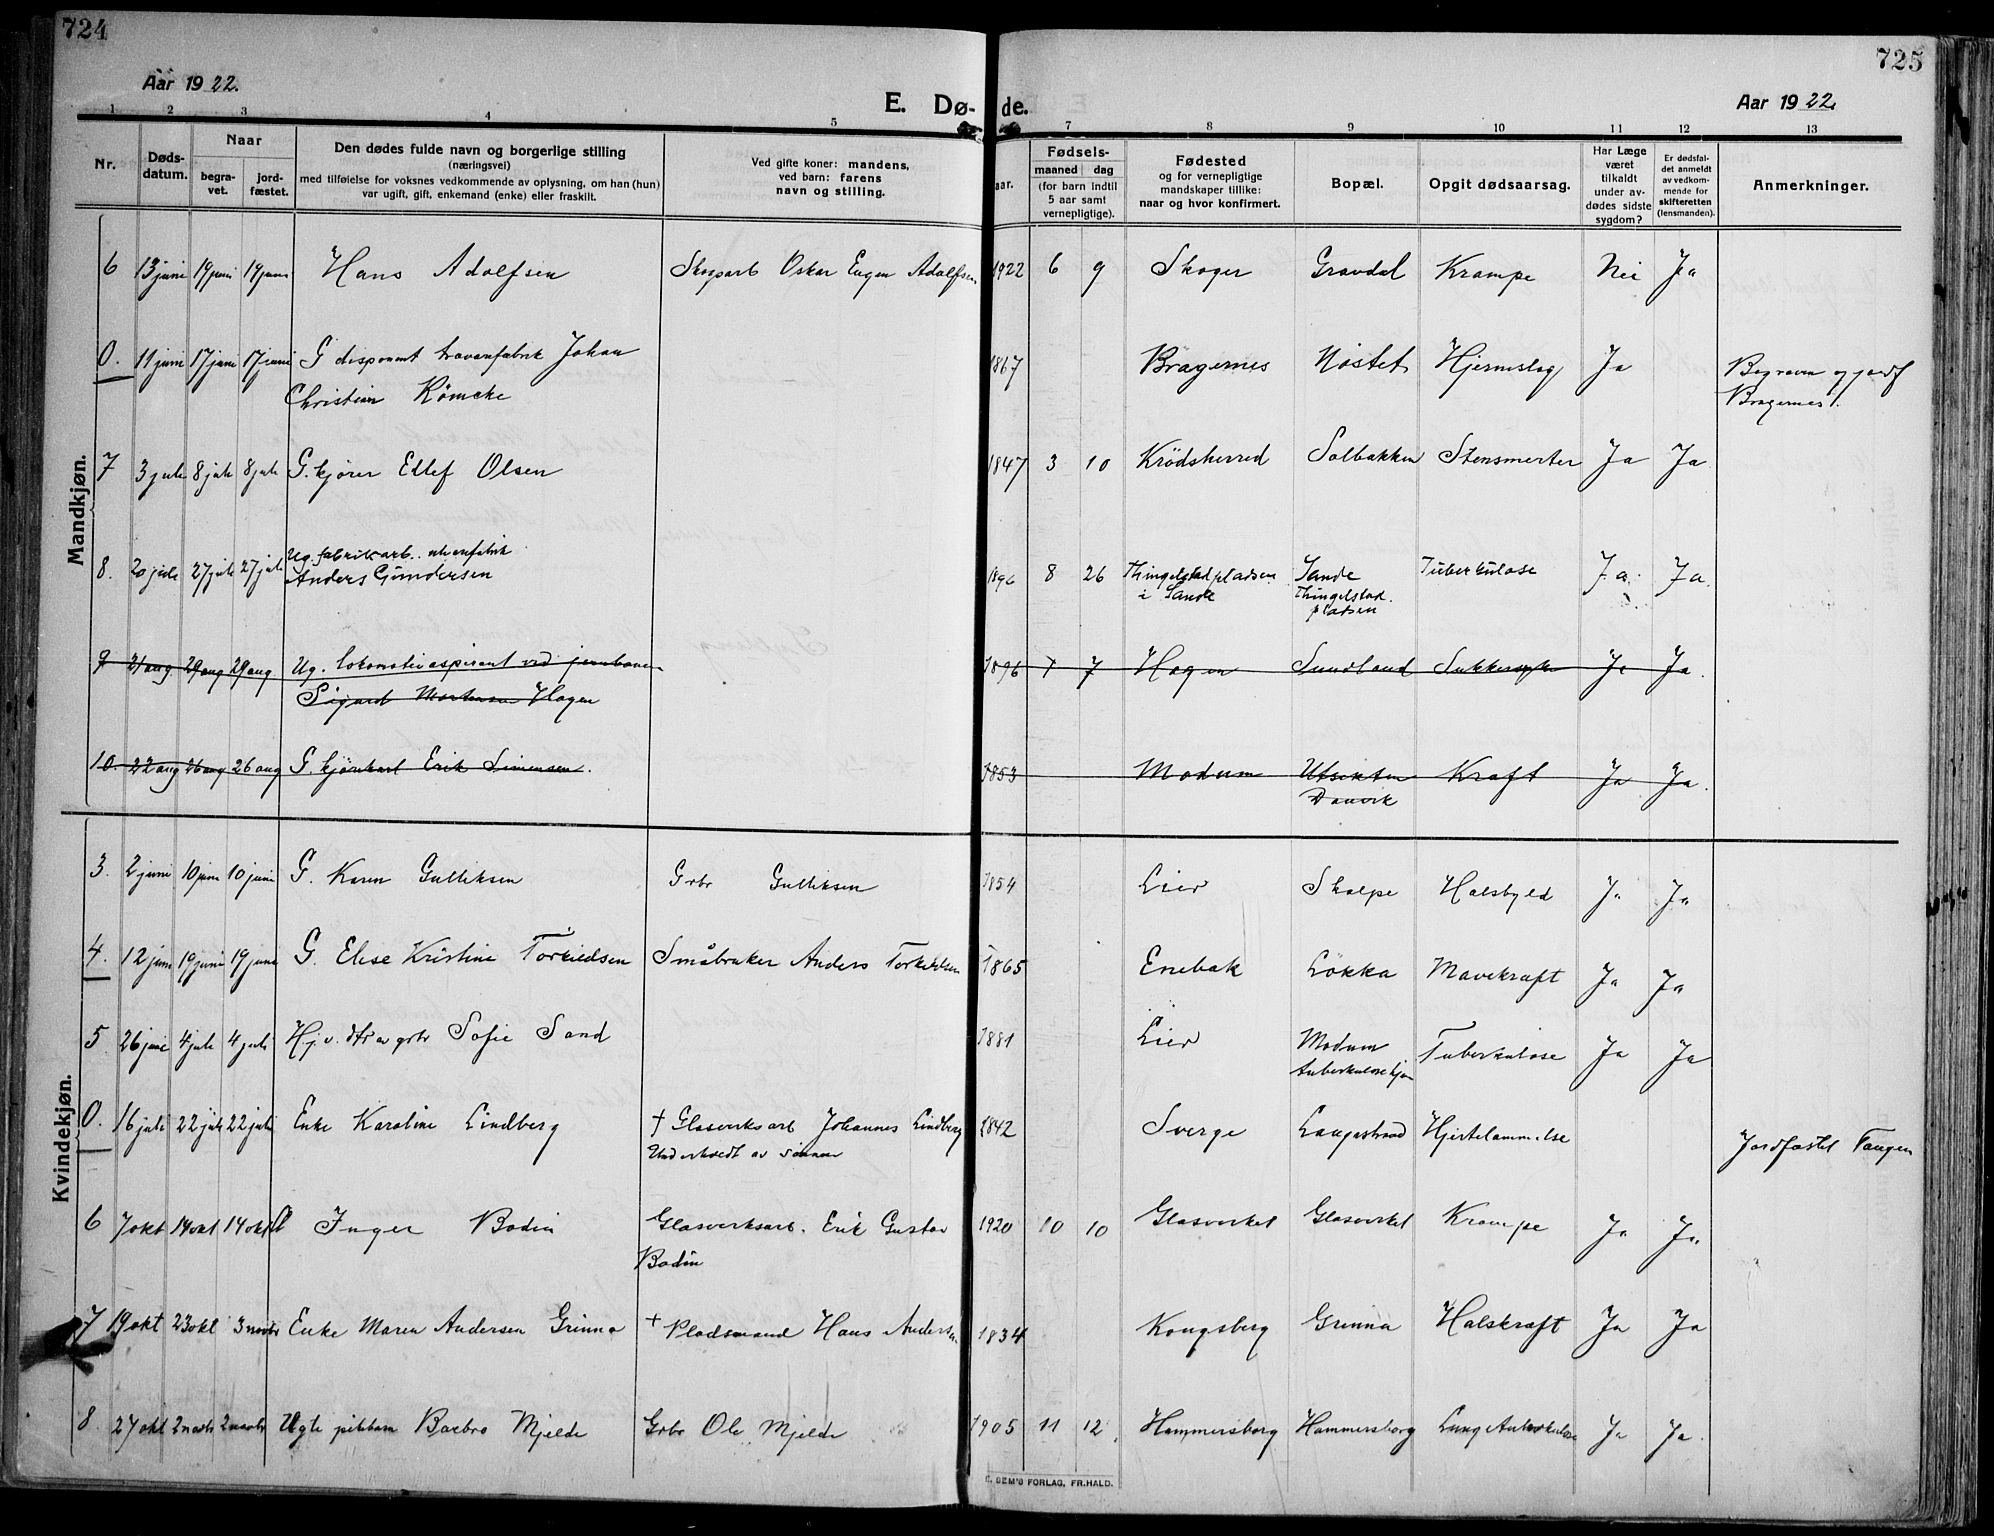 724
725
Aar 1922.
E. Dø- de.
Aar 1922.
1 2 3 4 5 7 8 9 10 11 12 13
Nr.
Døds-
datum.
Naar
begra-
vet.
jord-
fæstet.
Den dødes fulde navn og borgerlige stilling
(næringsvei)
med tilføielse for voksnes vedkommende av oplysning, om han (hun)
var ugift, gift, enkemand (enke) eller fraskilt.
Ved gifte koner: mandens,
ved barn: farens
navn og stilling.
aar.
Fødsels-
maaned dag
(for barn indtil
5 aar samt
vernepligtige).
Fødested
og for vernepligtige
mandskaper tillike:
naar og hvor konfirmert.
Bopæl.
Opgit dødsaarsag.
Har Læge
været
tilkaldt
under av-
dødes sidste
sygdom?
Er dødsfal-
det anmeldt
av vedkom-
mende for
skifteretten
(lensmanden).
Anmerkninger.
Mandkjøn.
6 13 juni 19 juni 19 juni Hans Adolfsen Skogarb Oskar Eugen Adolfsen 1922 6 9 Skoger Gravdal Krampe Nei Ja
0. 11 juni 17 juni 17 juni G disponent Johan 1867 Bragernes Nøstet Hjerneslag Ja Begraven og jordf
Christian Römcke Bragernes.
7 3 juli 8 juli 8 juli G. kjører Ellef Olsen 1847 3 10 Krödsherred Solbakken Stensmerter Ja Ja
8. 20 juli 27 juli 27 juli Ug. fabrikarb.
Anders Gundersen 1896 8 26 Thingelstadpladsen Sande Tuberkulose Ja Ja
i Sande Thingelstad
pladsen
9 21 aug 29 aug 29 aug Ug. lokomotivaspirant ved jernbanen 1896 7 7 Hagen Sundland Sukkersyke Ja Ja.
Sigurd Mortensen Hagen
10. 22 aug 26 aug 26 aug G. Erik Simensen. 1853 Modum Utsikten Kræft Ja Ja.
Danvik
Kvindekjøn.
3. 2 juni 10 juni 10 juni G. Karen Gulliksen Grbr Gulliksen 1854 Lier Skalpe Halsbyld Ja Ja
4. 12 juni 19 juni 19 juni G. Elise Kristine Torkildsen Småbruker Anders Torkildsen 1865 Enebak Løkka Mavekræft Ja Ja
5 26 juni 4 juli 4 juli Hj.v. dtr av grbr Sofie Sand 1881 Lier Modum Tuberkulose Ja Ja
Tuberkulosehjem
0. 16 juli 22 juli 22 juli Enke Karoline Lindberg + Glasverksarb Johannes Lindberg 1842 Sverge Langestrand Hjertelammelse Jordfæstet Tangen
Underholdt av sønnen
6 7 okt 14 okt 14 okt Inger Bodin Glasverksarb. Erik Gustav 1920 10 10 Glasverket Glasverket Krampe Ja Ja.
Bodin
7 19 okt 23 okt 3 novbr Enke Maren Andersen Grinna + Pladsmand Hans Andersen 1834 Kongsberg Grinna Halskræft Ja Ja
8. 27 okt 2 novbr 2 novbr Ugte Barbro Mjelde Grbr Ole Mjelde 1905 11 12 Hammersborg Hammersborg Lungetuberkulose Ja Ja.
DEM'S FORLAG, FR.HALD.